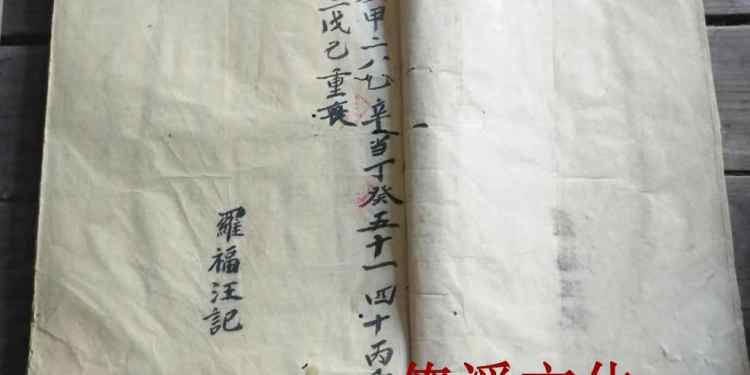 甲二八乙辛当丁癸五十一四十丙
戊己重喪
羅福汪記